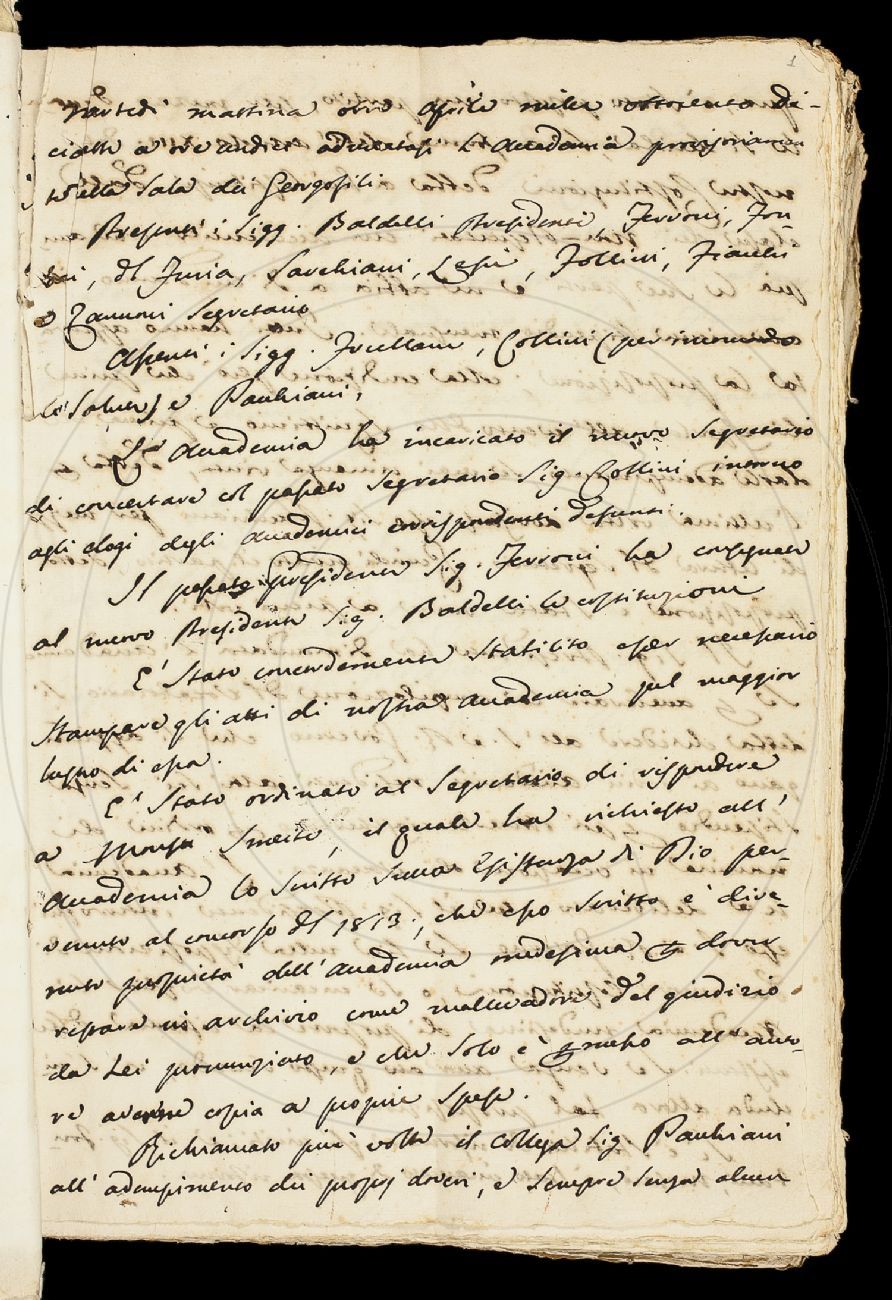 1
Martedì mattina otto Aprile mille ottocento di-
ciotto a ore undici adunatasi l'Accademia provisoriamen
te nella Sala dei Georgofili
Presenti i Sigg. Baldelli Presidente, Ferroni, Fon-
tani, del Furia, Sarchiani, Lessi, Follini, Fiacchi
e Zannoni Segretario
Assenti i Sigg. Frullani, Collini (per incomodo
di salute) e Pauchiani,
L'Accademia ha incaricato il nuovo Segretario
di concertare col passato Segretario Sig. Collini intorno
agli elogi degli Accademici corrispondenti defunti.
Il passato presidente Sig. Ferroni ha consegnate
al nuovo Presidente Sig. Baldelli le costituzioni
E' stato concordemente stabilito esser necessario
stampare gli atti di nostra Accademia pel maggior
lustro di essa.
E' stato ordinato al Segretario di rispondere
a , il quale ha richiesto all'
Accademia lo scritto sulla Esistenza di Dio per-
venuto al concorso del 1813, che esso scritto è dive-
nuto proprietà dell'Accademia medesima e dover
restare in archivio come mallevadore del giudizio
da Lei pronunziato, e che solo è permesso all'auto-
re averne copia a proprie spese.
Richiamato più volte il collega Sig. Pauchiani
all'adempimento dei proprj doveri, e sempre senza alcun